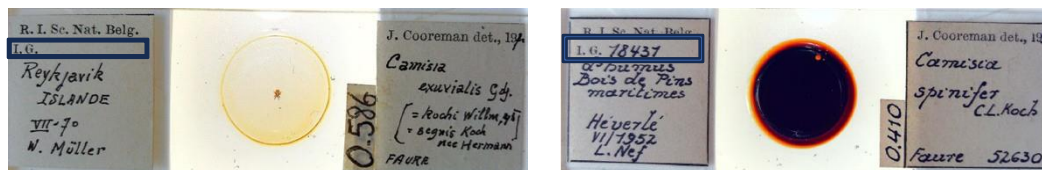 R. I. Sc. Nat. Belg.
I.G.
Reykjavik
ISLANDE
VII-70
W. Müller
0.586
J. Cooreman det., 19
Camisia
exuvialis
= kochi Willm,
= segnis Koch
nec Hermann
FAURE
R. I. Sc. Nat. Belg.
I. G. 18431
humus
Bois de Pins
maritimes
Héverlé
VI/1952
L. Nef
0.410
J. Cooreman det., 19
Camisia
spinifer
C.L. Koch
Faure 52630